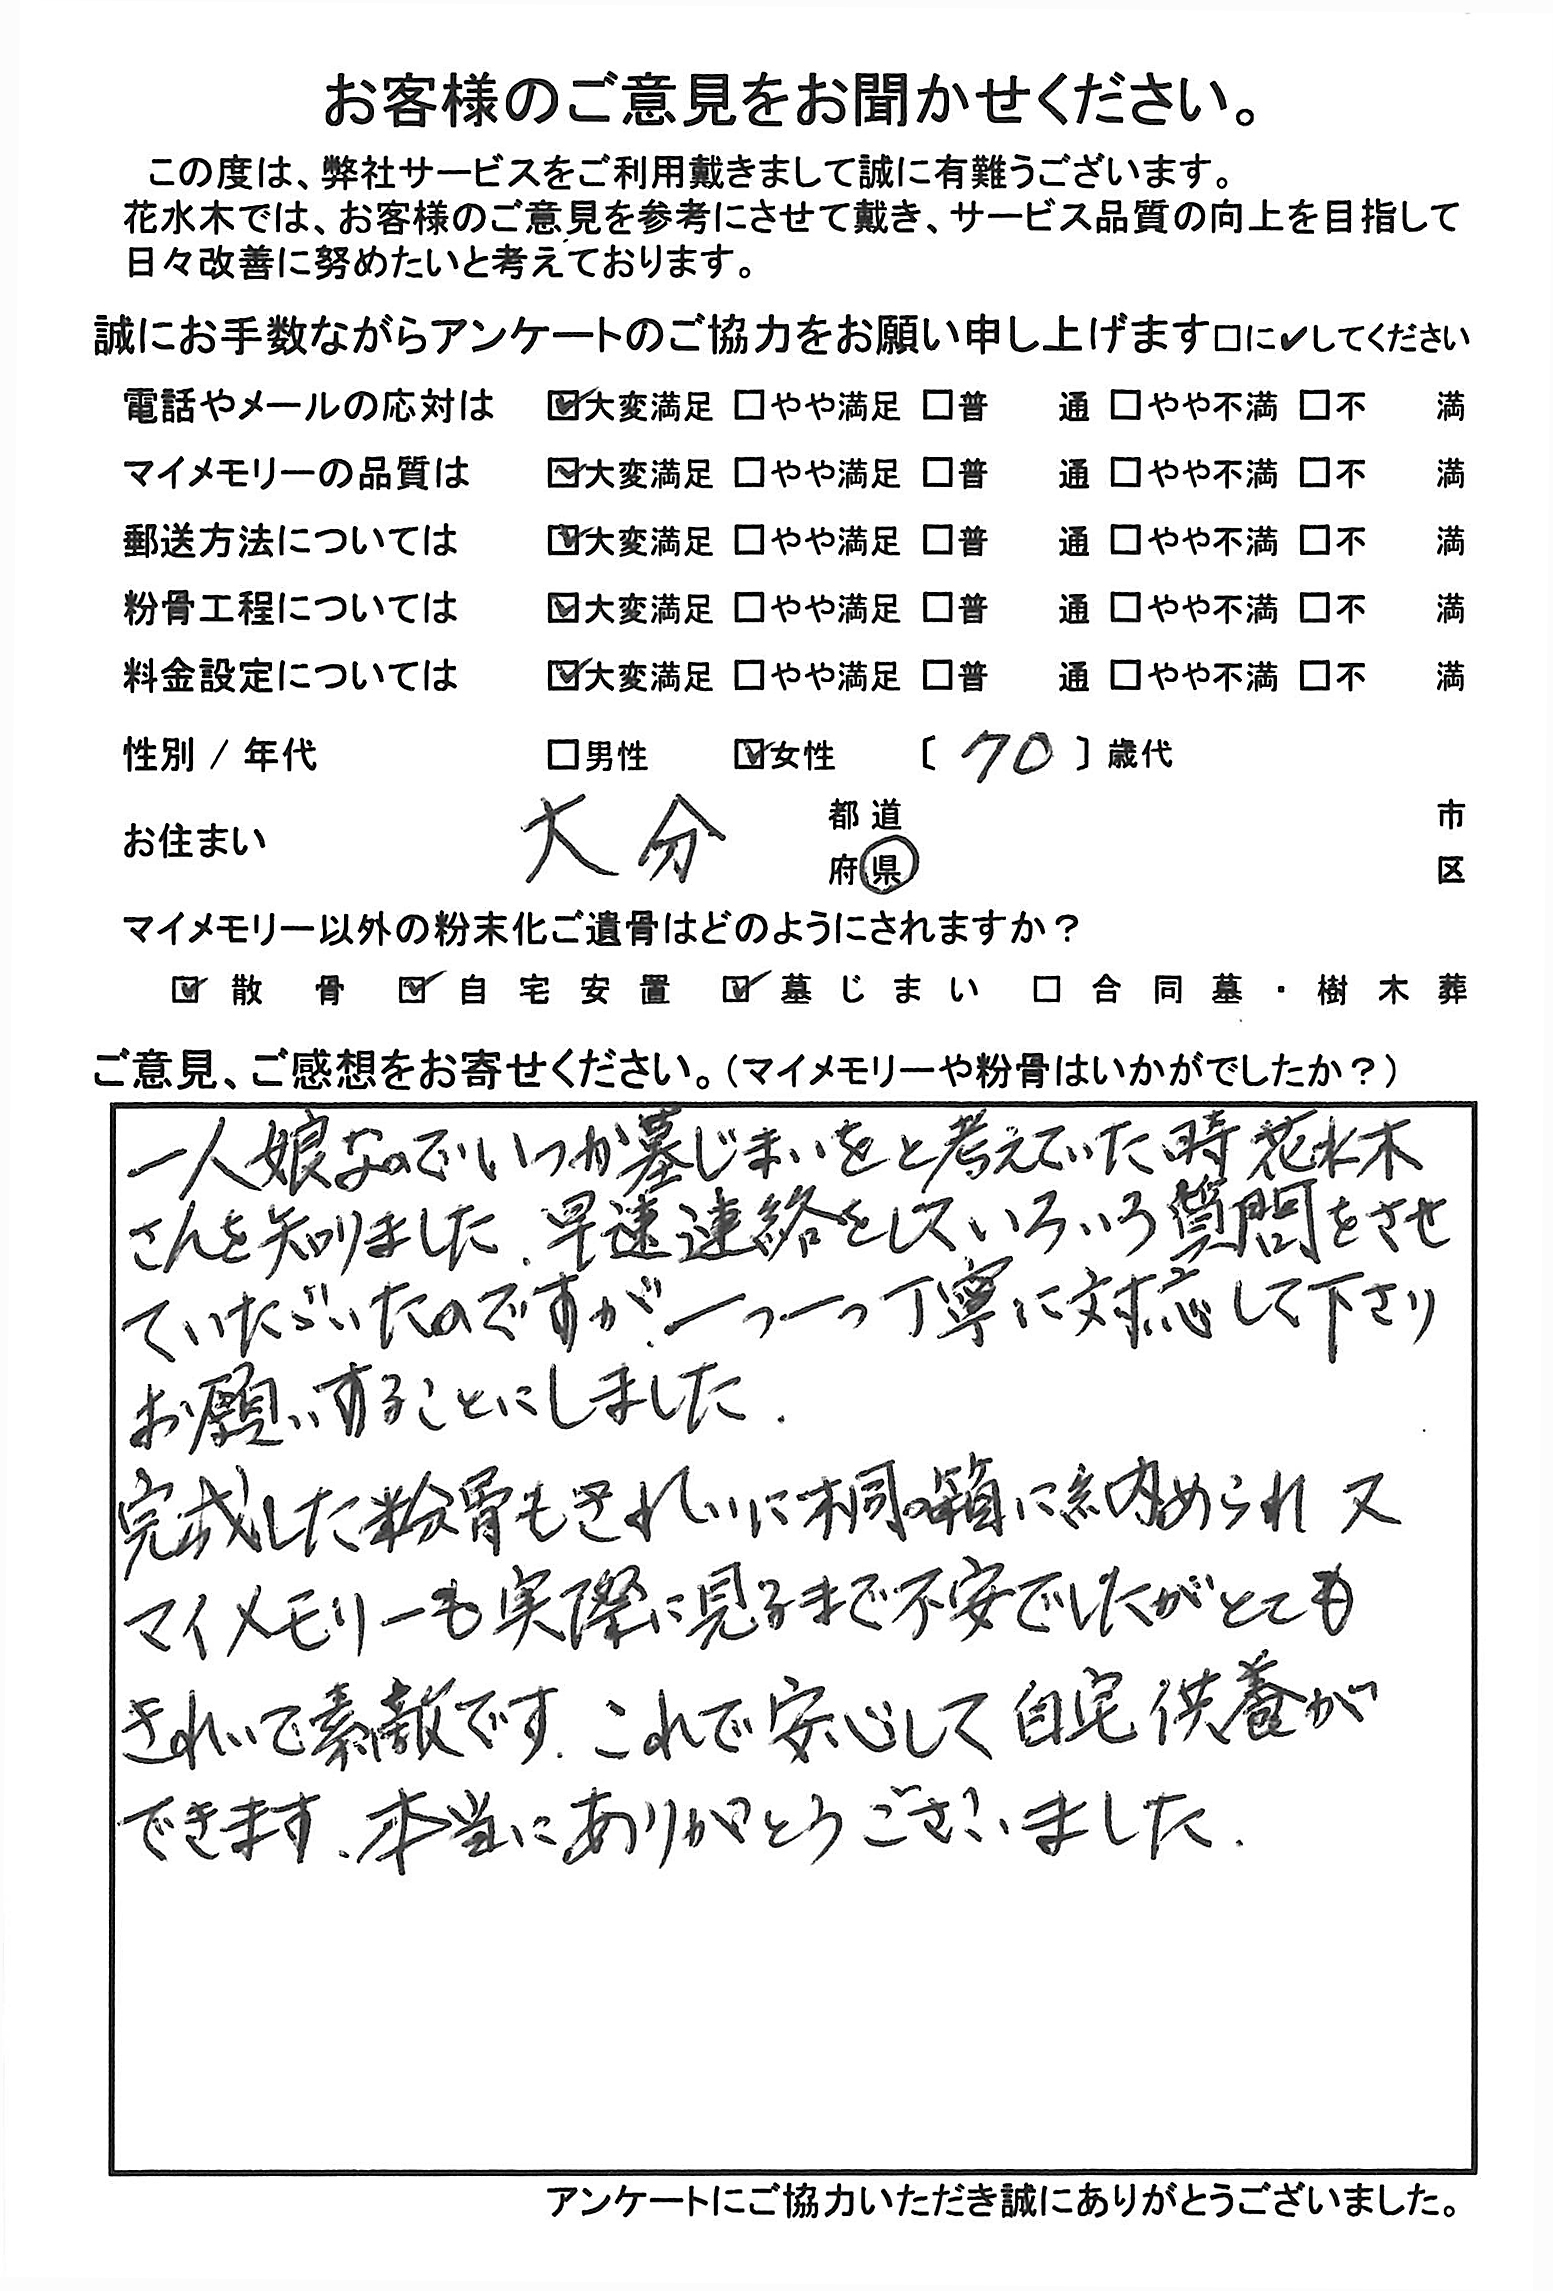 お客様のご意見をお聞かせください。
この度は、弊社サービスをご利用戴きまして誠に有難うございます。
花水木では、お客様のご意見を参考にさせて戴き、サービス品質の向上を目指して
日々改善に努めたいと考えております。
誠にお手数ながらアンケートのご協力をお願い申し上げます□に✔してください
電話やメールの応対は ☑大変満足 □やや満足 □普通 □やや不満 □不満
マイメモリーの品質は ☑大変満足 □やや満足 □普通 □やや不満 □不満
郵送方法については ☑大変満足 □やや満足 □普通 □やや不満 □不満
粉骨工程については ☑大変満足 □やや満足 □普通 □やや不満 □不満
料金設定については ☑大変満足 □やや満足 □普通 □やや不満 □不満
性別 / 年代 □男性 ☑女性 〔 70 〕歳代
お住まい 大分 都道府県 市区
マイメモリー以外の粉末化ご遺骨はどのようにされますか？
☑散骨 ☑自宅安置 ☑墓じまい □合同墓・樹木葬
ご意見、ご感想をお寄せください。（マイメモリーや粉骨はいかがでしたか？）
一人娘なのでいつか墓じまいをと考えていた時花水木
さんを知りました。早速連絡をしていろいろ質問をさせ
ていただいたのですが、一つ一つ丁寧に対応して下さり
お願いすることにしました。
完成した粉骨もきれいに桐の箱に納められ又
マイメモリーも実際に見るまで不安でしたがとても
きれいで素敵です。これで安心して自宅供養が
できます。本当にありがとうございました。
アンケートにご協力いただき誠にありがとうございました。